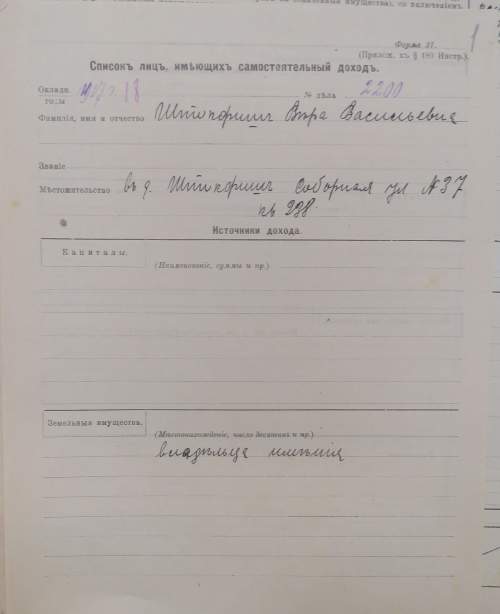 Форма 37.
1
(Прилож. къ § 180 Инстр.).
Списокъ лицъ, имѣющихъ самостоятельный доходъ.
Окладн. годы 1917 г. 18 № дѣла 2200
Фамилія, имя и отчество Штопфишъ Вѣра Васильевна
Званіе
Мѣстожительство въ д. Штопфишъ Соборная ул № 37
кв 238.
Источники дохода.
Капиталы.
(Наименованіе, суммы и пр.)
Земельныя имущества.
(Мѣстонахожденіе, число десятинъ и пр.)
владѣльца имѣнія